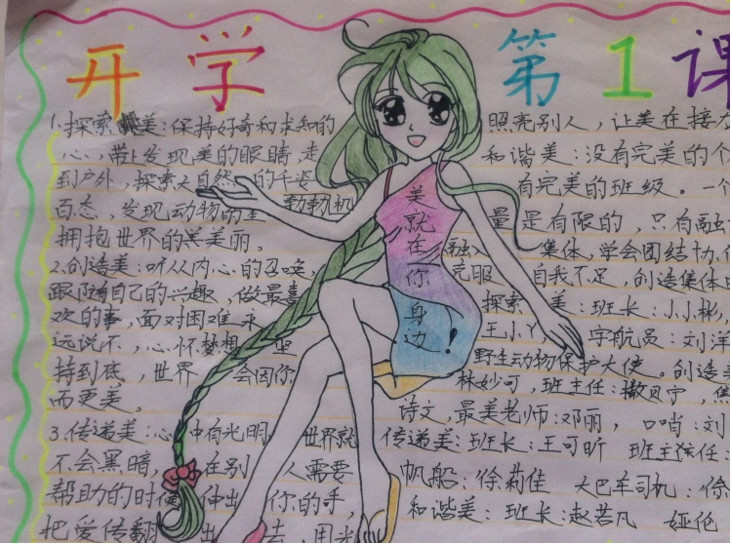 开学 第1课
1.探索美:保持好奇和求知的
心,带上发现美的眼睛,走
到户外,探索大自然的千姿
百态,发现动物的
勃勃机
拥抱世界的美丽。
2.创造美:听从内心的召唤,
跟随自己的兴趣,做最喜
欢的事,面对困难永
远说不,心怀梦想,坚
持到底,世界会因你
而更美。
3.传递美:心中有光明,世界就
不会黑暗,在别人需要
帮助的时候伸出你的手,
把爱传 出去,用
美就在你身边!
照亮别人,让美在接
和谐美:没有完美的个
有完美的班级。一个
量是有限的,只有融
融入集体,学会团结协
克服自我不足,创造集体
探索美:班长:小小彬,
王小丫,宇航员:刘洋
野生动物保护大使。创造美
林妙可,班主任:撒贝宁,
诗文,最美老师:邓丽,口哨:刘
传递美:班长:王可昕 班主任:
帆船:徐莉佳 大巴车司机:
和谐美:班长:赵若凡 娅伦